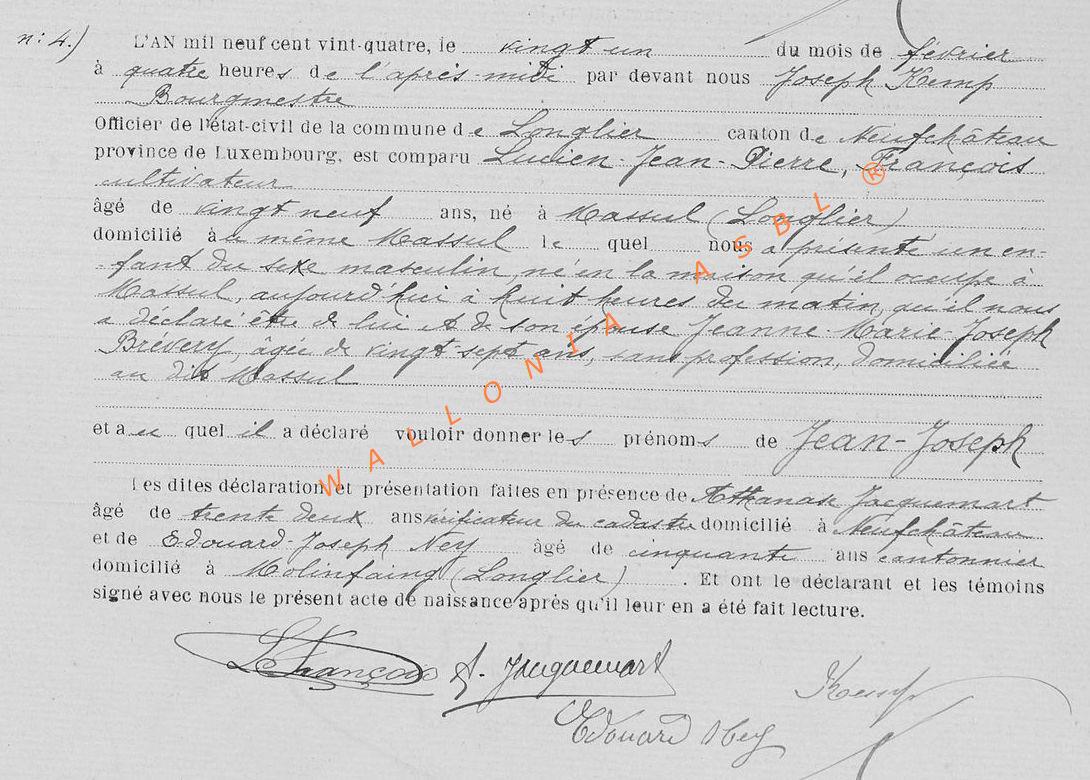 n: 4.)
L'AN mil neuf cent vint-quatre, le vingt un du mois de février
à quatre heures de l'après-midi par devant nous Joseph Kemp
Bourgmestre
Officier de l'état-civil de la commune de Longlier canton de Neufchâteau
province de Luxembourg, est comparu Lucien-Jean-Pierre, François
cultivateur
âgé de vingt neuf ans, né à Massul (Longlier)
domicilié au même Massul lequel nous a présenté un en-
fant du sexe masculin, né en la maison qu'il occupe à
Massul, aujourd'hui à huit heures du matin, qu'il nous
a déclaré être de lui et de son épouse Jeanne Marie-Joseph
Brévery, âgée de vingt sept ans, sans profession, domiciliée
au dit Massul
et au quel il a déclaré vouloir donner les prénoms de Jean-Joseph
Les dites déclaration et présentation faites en présence de Athanase Jacquemart
âgé de trente deux ans vérificateur du cadastre domicilié à Neufchâteau
et de Edouard-Joseph Ney âgé de cinquante ans cantonnier
domicilié à Molinfaing (Longlier). Et ont le déclarant et les témoins
signé avec nous le présent acte de naissance après qu'il leur en a été fait lecture.
L. François A. Jacquemart Kemp
Edouard Ney
WALLONIA ASBL ®